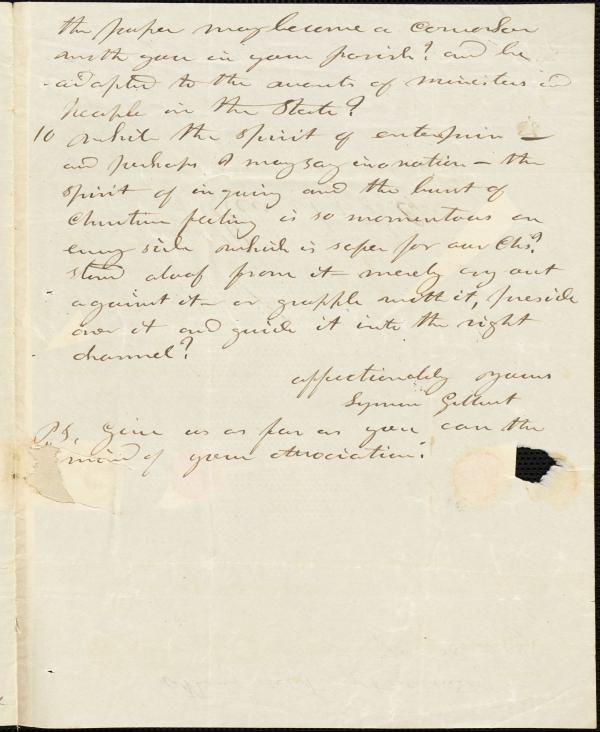 the paper may become a coworker
with you in your parish? and be
adapted to the wants of ministers &
people in the State?
10 While the spirit of enterprise —
and perhaps I may say innovation — the
spirit of inquiry and the burst of
Christian feeling is so momentous on
every side which is safer for our Chs?
stand aloof from it merely cry out
against it or grapple with it, preside
over it and guide it into the right
channel?
affectionately yours
Lyman Gilbert
P.S. Give us as far as you can the
mind of your Association.